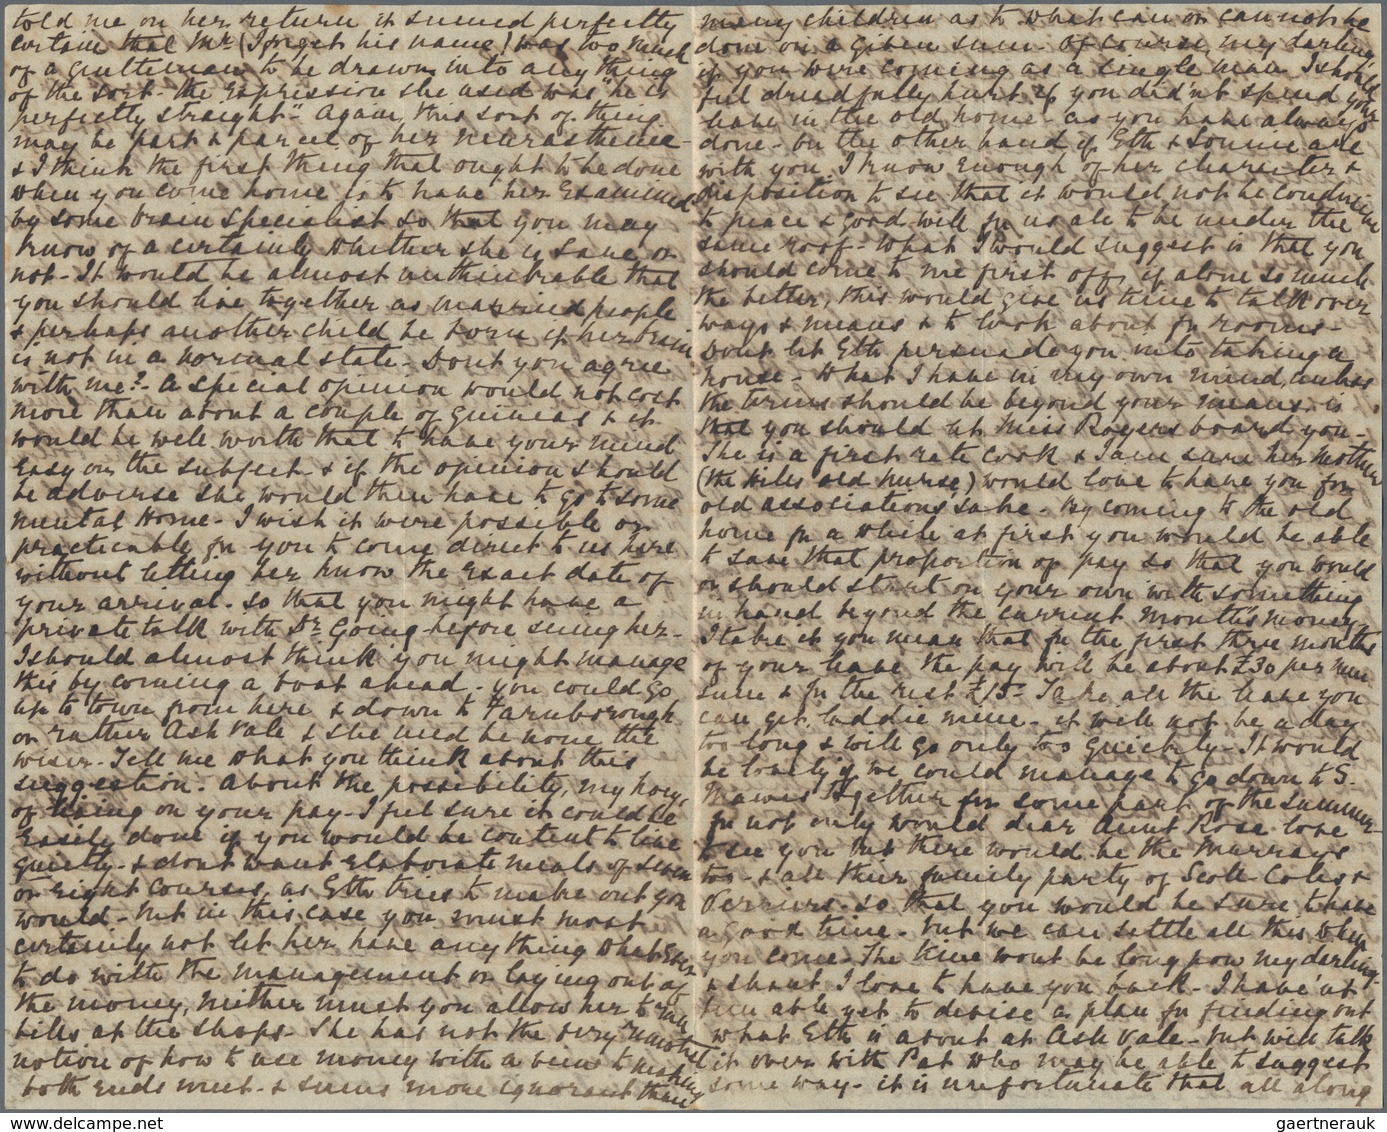 told me on her return it seemed perfectly
certain that Mr (I forget his name) was too much
of a gentleman to be drawn into anything
of the sort. the expression she used was "he is
perfectly straight". Again, this sort of thing
may be part & parcel of her neurasthenia -
& I think the first thing that ought to be done
when you come home is to have her Examined
by some brain specialist so that you may
know of a certainty whether she is sane or
not - It would be almost unthinkable that
you should live together as married people
& perhaps another child be born if her brain
is not in a normal state - Dont you agree
with me? - A special opinion would not cost
more than about a couple of guineas & it
would be well worth that to have your mind
Easy on the subject & if the opinion should
be adverse she would then have to go to some
mental Home - I wish it were possible or
practicable for you to come direct to us here
without letting her know the Exact date of
your arrival - so that you might have a
private talk with Dr. Going before seeing her -
I should almost think you might manage
this by coming a boat ahead - you could go
up to town from here & down to Farnborough
or rather Ash Vale & she need be none the
wiser - Tell me what you think about this
suggestion. About the possibility, my boy,
of living on your pay - I feel sure it could be
Easily done if you would be content to live
quietly - & dont want Elaborate meals of seven
or Eight courses, as Eth tries to make out you
would - But in this case you must most
certainly not let her have anything whatever
to do with the management or laying out of
the money, neither must you allow her to run
bills at the shops - She has not the very remotest
notion of how to use money with a view to making
both Ends meet - & seems more ignorant than
many children as to what can or cannot be
done on a given sum - Of course, my darling
if you were coming as a single man I should
feel dreadfully hurt if you didn't spend your
leave in the old home - as you have always
done - On the other hand if Eth & Sonnie are
with you, I know Enough of her character &
disposition to see that it would not be conducive
to peace & good will for us all to be under the
same roof - What I would suggest is that you
should come to me first off, if alone so much
the better, this would give us time to talk over
ways & means & to look about for rooms -
Dont let Eth persuade you into taking a
house - What I have in my own mind, unless
the terms should be beyond your means, is
that you should let Miss Rogers board you -
She is a first rate cook & I am sure her mother
(the Hills' old nurse) would love to have you for
old associations' sake - By coming to the old
home for a while at first you would be able
to save that proportion of pay so that you would
or should start on your own with something
in hand beyond the current month's money,
I take it you mean that for the first three months
of your leave the pay will be about £30 per men
sum & for the rest £15 - Take all the leave you
can get, laddie mine - it will not be a day
too long & will go only too quickly - It would
be lovely if we could manage to go down to S.
Mawes together for some part of the summer -
for not only would dear Aunt Rose love
to see you but there would be the Murrays
too - & all their family party of Scott Coles &
Perriers - so that you would be sure to have
a good time - but we can settle all this when
you come - The time wont be long now my darling
& shant I love to have you back - I have'nt
been able yet to devise a plan for finding out
what Eth is about at Ash Vale - but will talk
it over with Pat who may be able to suggest
some way - it is unfortunate that all along
gaertnerauk